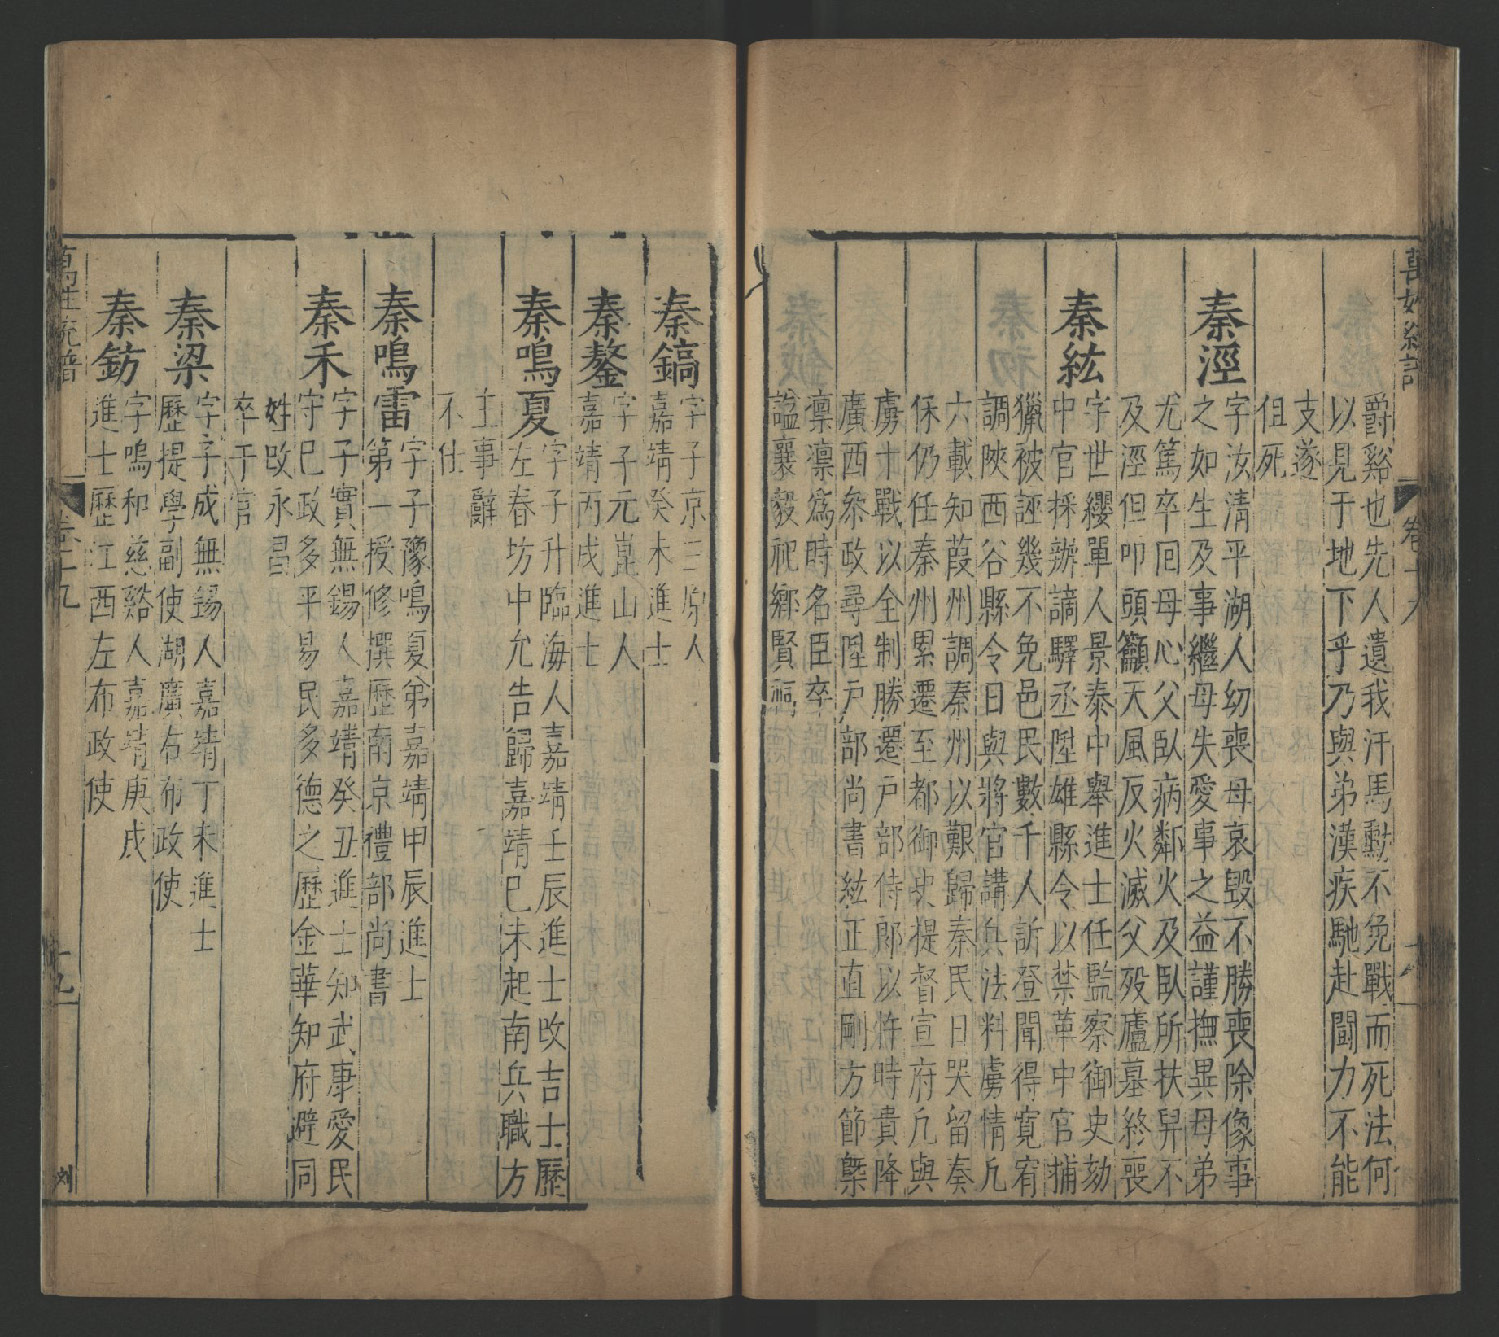 萬姓統譜
卷十九
爵谿也先人遺我汗馬勳不免戰而死法何
以見于地下乎乃與弟漢疾馳赴鬬力不能
支遂
俱死
秦涇
字汝清平湖人幼喪母哀毀不勝喪除像事
之如生及事繼母失愛事之益謹撫異母弟
尤篤卒回母心父臥病鄰火及臥所扶舁不
及涇但叩頭籲天風反火滅父歿廬墓終喪
秦紘
字世纓單人景泰中舉進士任監察御史劾
中官採辦謫驛丞陞雄縣令以禁革中官捕
獵被誣幾不免邑民數千人訴登聞得寬宥
調陝西谷縣令日與將官講兵法料虜情凡
六載知葭州調秦州以艱歸秦民日哭留奏
保仍任秦州累遷至都御史提督宣府凡與
虜十戰以全制勝遷戶部侍郎以忤時貴降
廣西叅政尋陞戶部尚書紘正直剛方節槩
凛凛爲時名臣卒
謚襄毅祀鄉賢祠
秦鎬
字子京三原人
嘉靖癸未進士
秦鏊
字子元崑山人
嘉靖丙戌進士
秦鳴夏
字子升臨海人嘉靖壬辰進士改吉士歷
左春坊中允告歸嘉靖己未起南兵職方
主事辭
不仕
秦鳴雷
字子豫鳴夏弟嘉靖甲辰進士
第一授修撰歷南京禮部尚書
秦禾
字子實無錫人嘉靖癸丑進士知武康愛民
守己政多平易民多德之歷金華知府避同
姓改永昌
卒于官
秦梁
字子成無錫人嘉靖丁未進士
歷提學副使湖廣右布政使
秦鈁
字鳴和慈谿人嘉靖庚戌
進士歷江西左布政使
萬姓統譜
卷十九
十九